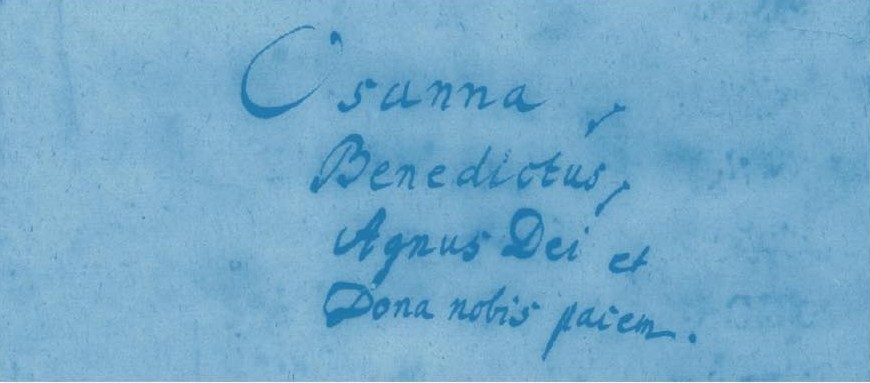 Osanna,
Benedictus,
Agnus Dei et
Dona nobis pacem.